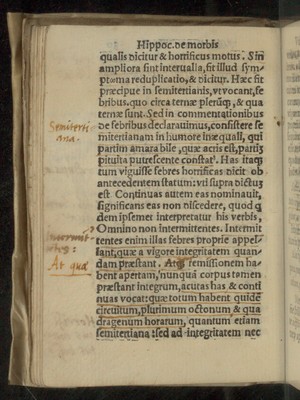 Hippoc. de morbis
qualis dicitur & horrificus motus. Sin
ampliora sint interualla, fit illud sym-
ptoma reduplicatio, & dicitur. Hæc fit
præcipue in semitertianis, vt vocant, fe
bribus. quo circa ternæ plerūq;, & qua
ternæ sunt. Sed in commentationibus
de febribus declarauimus, consistere se
mitertianam in humore inæquali, qui
partim amara bile, quæ acris est, partī
pituita putrescente constat. Has itaq;
tum viguisse febres horrificas dicit ob
antecedentem statum: vti supra dictū
est Continuas autem eas nominauit,
significans eas non discedere, quod q
dem ipsemet interpretatur his verbis,
Omnino non intermittentes. Intermit
tentes enim illas febres proprie appel-
lant, quæ a vigore integritatem quan-
dam præstant. At quæ remissionem ha-
bent apertam, nunquā corpus tamen
præstant integrum, acutas has & conti
nuas vocat: quæ totum habent quidē
circuitum, plurimum octonum & qua
dragenum horarum, quantum etiam
semitertiana: sed ad integritatem nec
Semiterti
ana.
At quæ